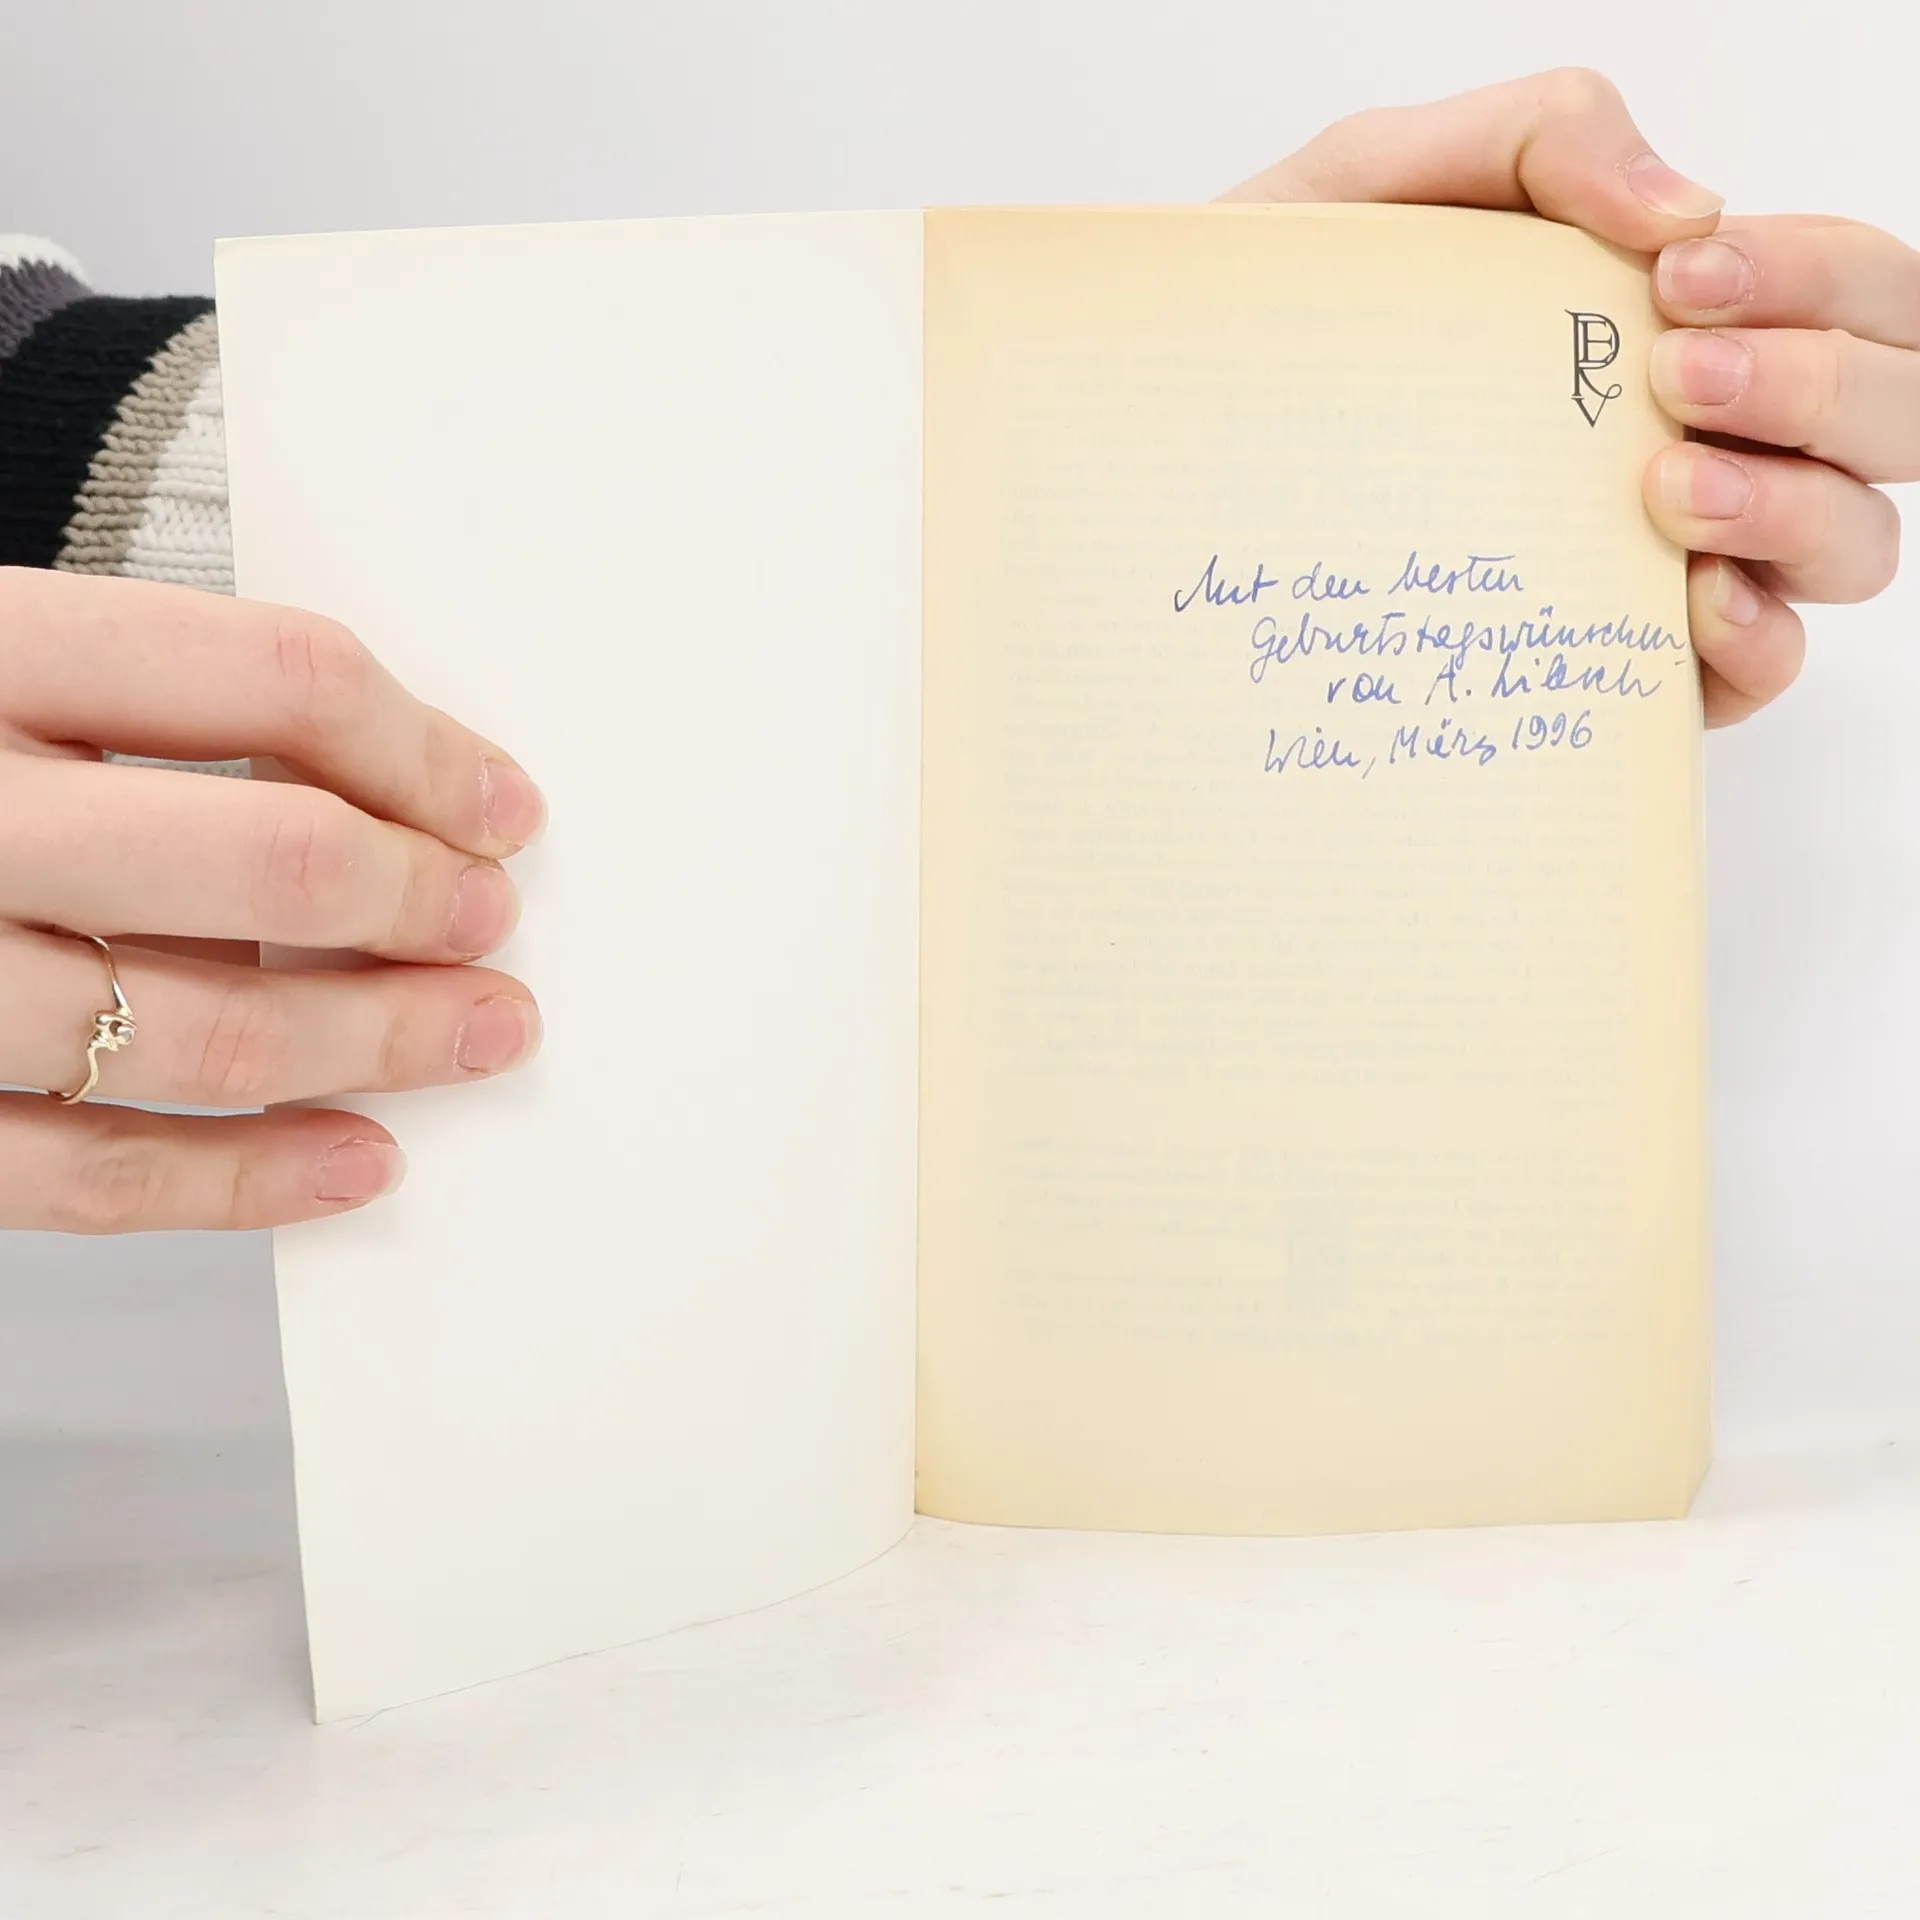 DE
RV
Mit den besten
Geburtstagswünschen
von A.
Wien, März 1996